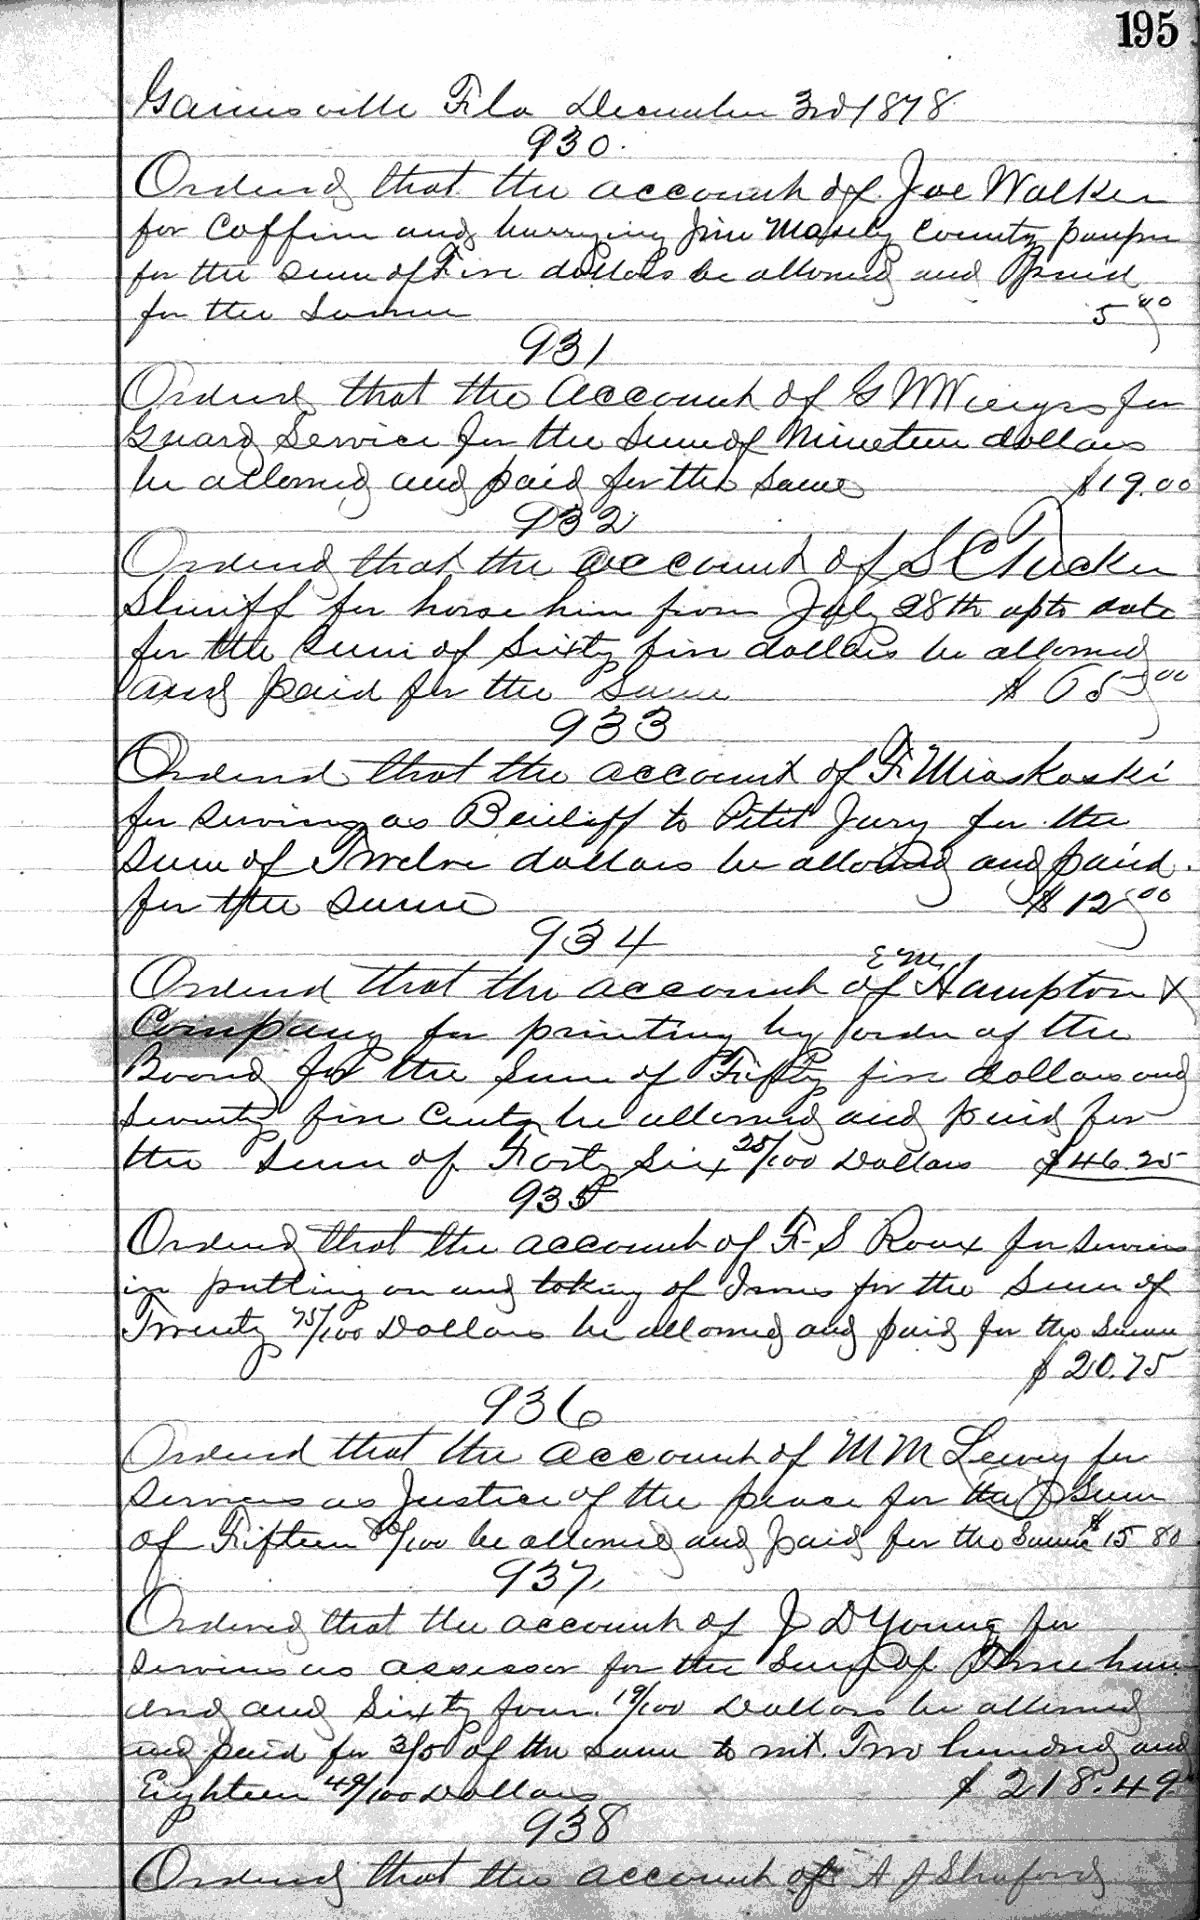 195
Gainesville Fla December 3rd 1878
930.
Ordered that the account of Joe Walker
for Coffin and burrying Jim County pauper
for the sum of Five dollars be allowed and paid
for the same 5 00
931
Ordered that the account of G W for
Guard Service for the sum of Nineteen dollars
be allowed and paid for the same $19.00
932
Ordered that the account of S C Tucker
Sheriff for horse hire from July 28th upto date
for the sum of Sixty five dollars be allowed
and paid for the same $ 65 00
933
Ordered that the account of F. Miaskoski
for serving as Beiliff to Petit Jury for the
sum of Twelve dollars be allowed and paid.
for the same $ 12 00
934
Ordered that the account of E M Hampton &
Company for printing by order of the
Board for the sum of Fifty five dollars and
seventy five Cents be allowed and paid for
the sum of Forty Six 25/100 Dollars $46.25
935
Ordered that the account of F S Roux for services
in putting on and taking of Irons for the sum of
Twenty 75/100 Dollars be allowed and paid for the same
$ 20.75
936
Ordered that the account of M M Lewey for
services as Justice of the peace for the sum
of Fifteen 80/100 be allowed and paid for the same $15 80
937
Ordered that the account of J D Young for
services as assessor for the sum of Three hun
dred and Sixty four 19/100 Dollars be allowed
and paid for 3/5 of the same to wit. Two hundred and
Eighteen 49/100 Dollars $ 218.49
938
Ordered that the account of A J Shaford